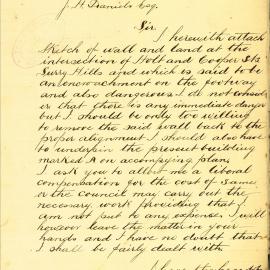 J. H. Daniels Esq.
Sir
I herewith attach
sketch of wall and land at the
intersection of Holt and Cooper Sts
Surry Hills and which is said to be
an encroachment on the footway
and also dangerous I do not consider
that there is any immediate danger
but I should be only too willing
to remove the said wall back to the
proper alignment I should also have
to underpin the present building
marked A on accompying plan,
I ask you to allow me a liberal
compensation for the cost of same
or the council may carry out the
necessary work providing that I
am not put to any expense, I will
however leave the matter in your
hands and I have no doubt that
I shall be fairly dealt with